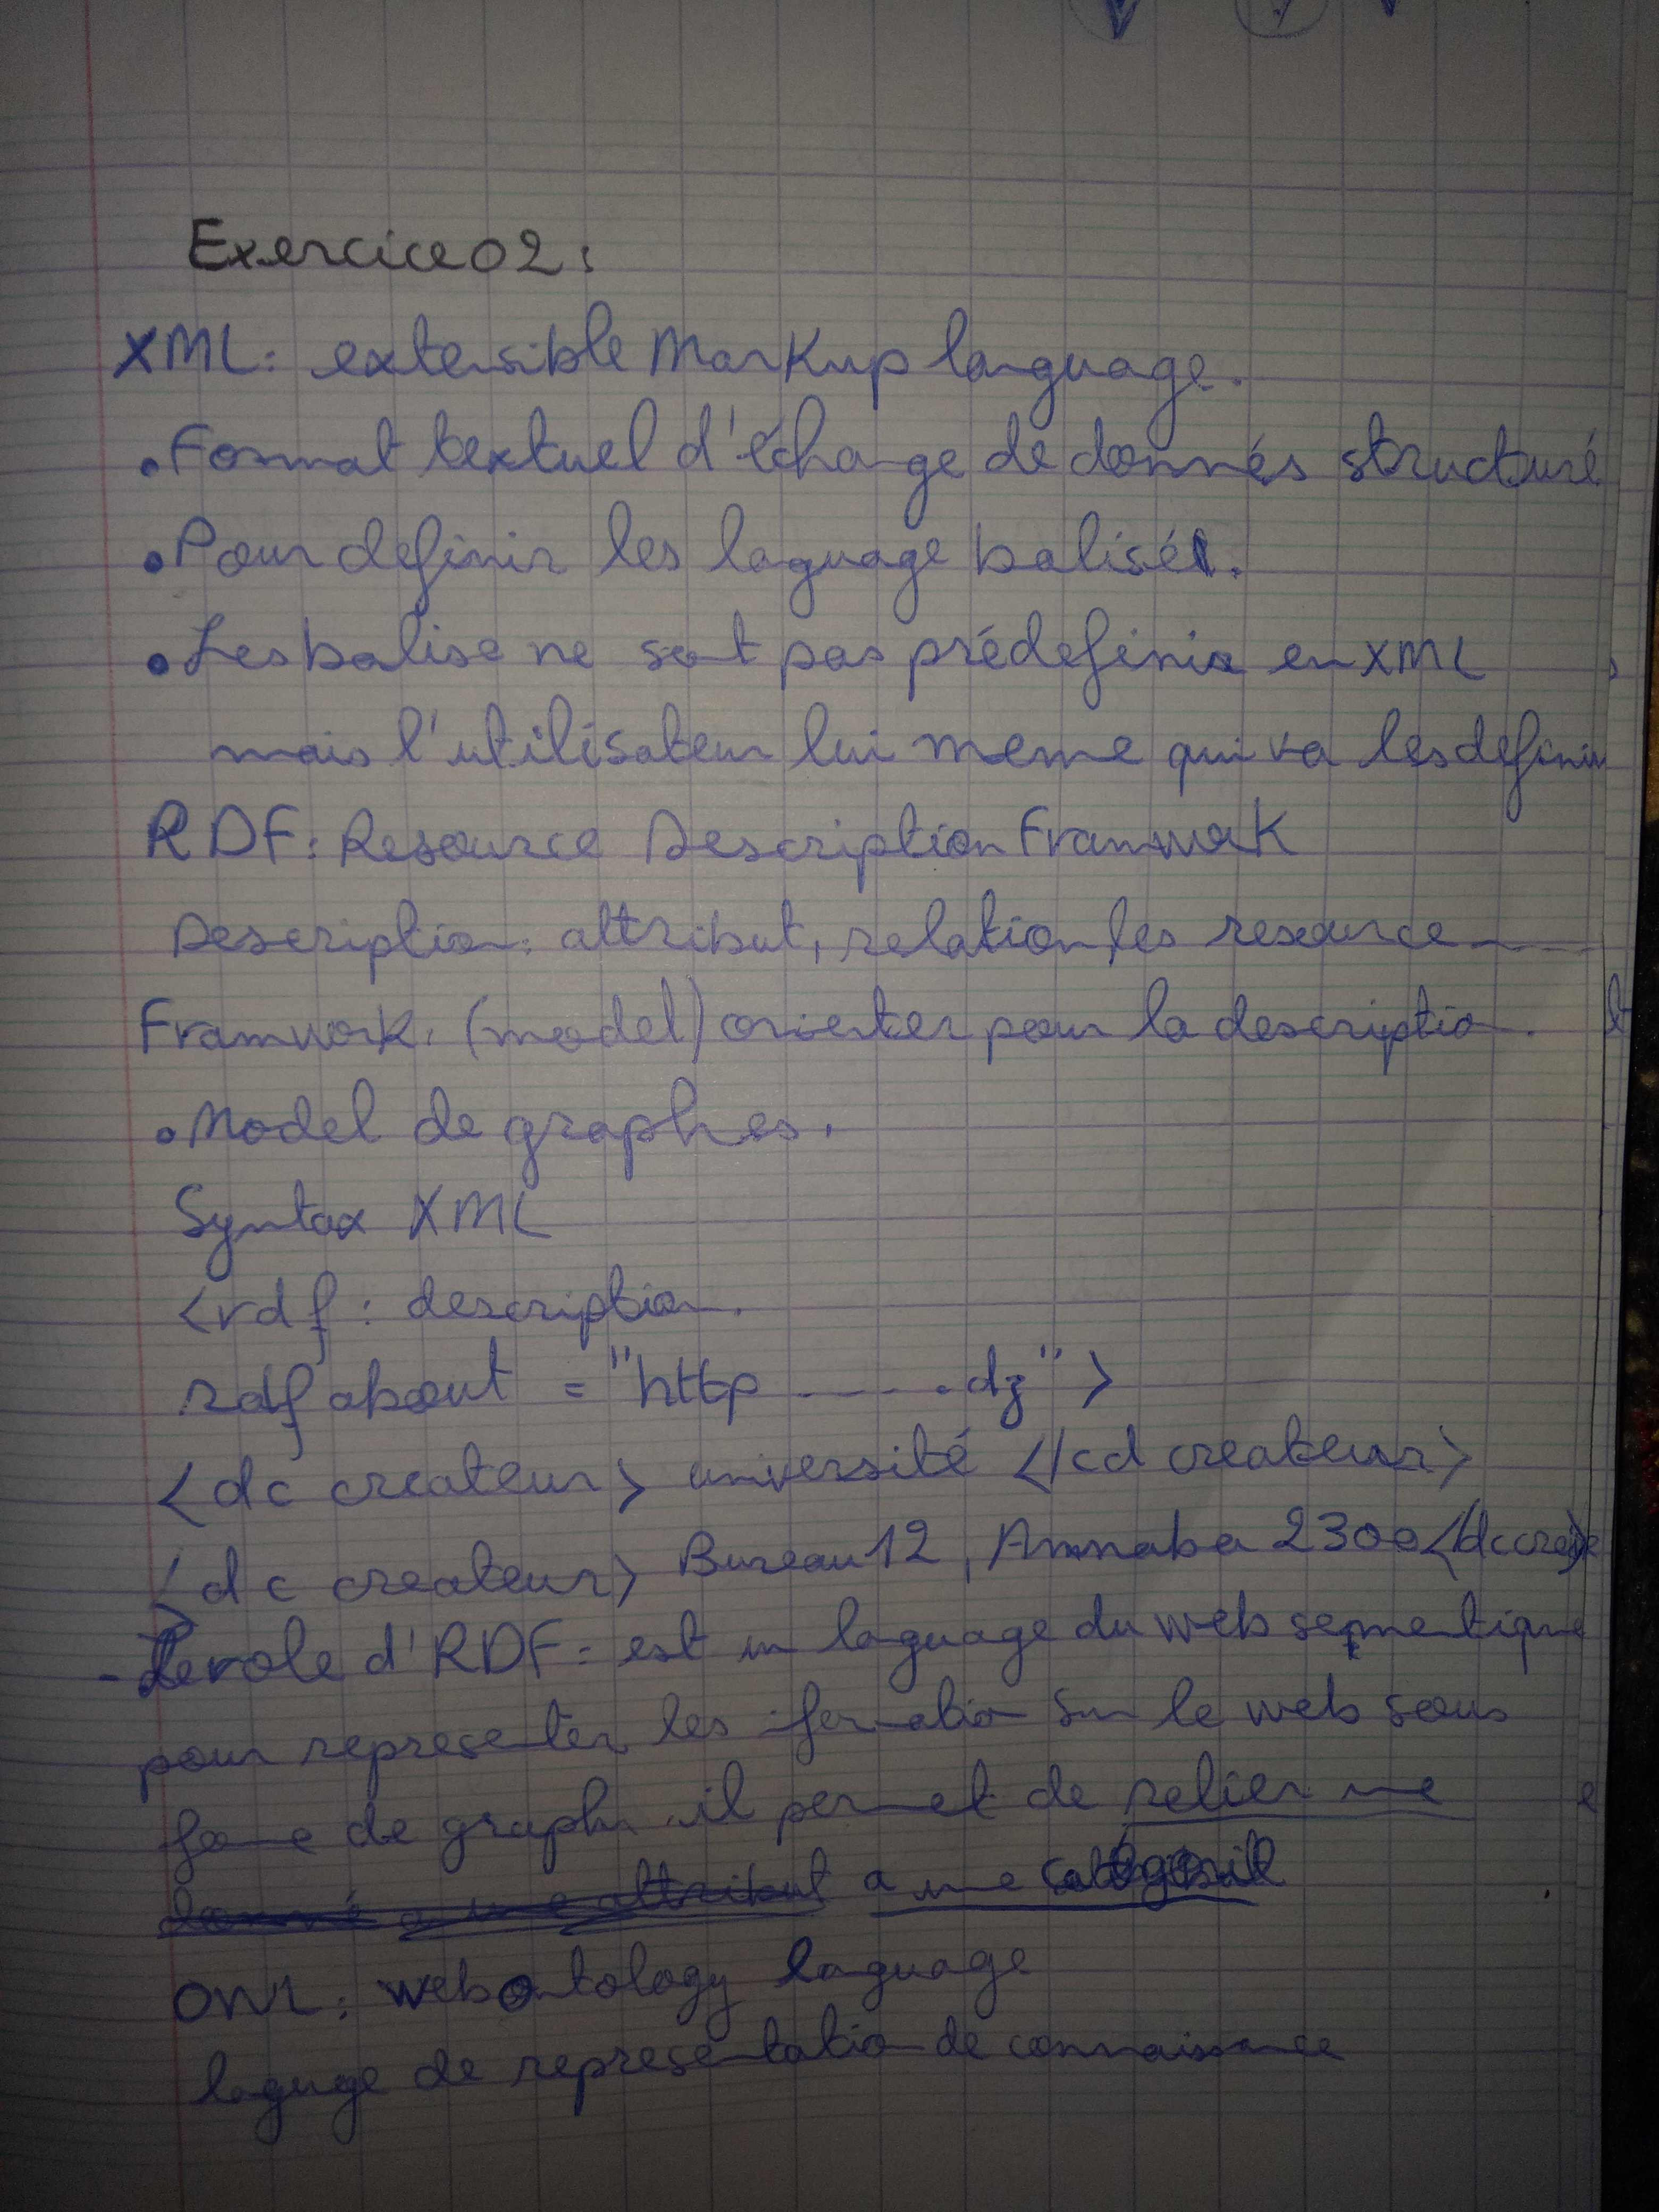 Exercice 02:
XML: extensible Markup language.
• Format textuel d'échange de donnés structuré
• Pour definir les laguage balisé.
• Les balise ne sont pas prédefinie en XML
mais l'utilisateur lui meme qui va les definir
RDF: Resource Description Framwork
Description: attribut, relation, les resource ----
Framwork: (model) orienter pour la description.
• Model de graphes.
Syntax XML
<rdf: description.
rdf about = "http ------.dz">
<dc createur> université </cd createur>
<dc createur> Bureau 12, Annaba 2300 </dc
- Le role d'RDF: est un laguage du web sementique
pour representer les information sur le web sous
forme de graph. il permet de relier une
donné a une attribut a une
OWL: web ontology laguage
laguge de representation de connaissance